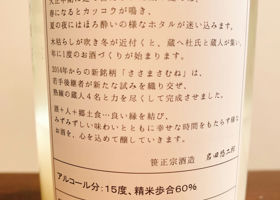 春になるとカッコウが鳴き、
夏の夜にはほろ酔いの様なホタルが迷い込みます。
木枯らしが吹き冬が近付くと、蔵へ杜氏と蔵人が集い、
年に1度のお酒づくりが始まります。
2014年からの新銘柄「ささまさむね」は、
若手後継者が新たな試みを織り交ぜ、
熟練の蔵人4名と力を尽くして完成させました。
酒+人+郷土食…良い縁を結び、
みずみずしい味わいとともに幸せな時間をもたらす様な
お酒を、心を込めて醸していきます。
笹正宗酒造 岩田悠二郎
アルコール分:15度、精米歩合60%